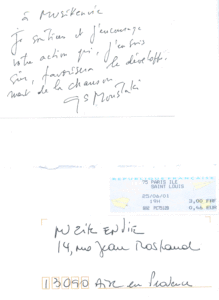 à Musikenvie
Je soutiens et j'encourage
votre action qui, j'en suis
sûr, favorisera le dévelop-
ment de la chanson
GS Moustaki
75 PARIS ILE
SAINT LOUIS
25/06/01
19H 3,00 FRF
0,46 EUR
MUZIK ENVIE
14, rue Jean Rostand
13090 Aix en Provence